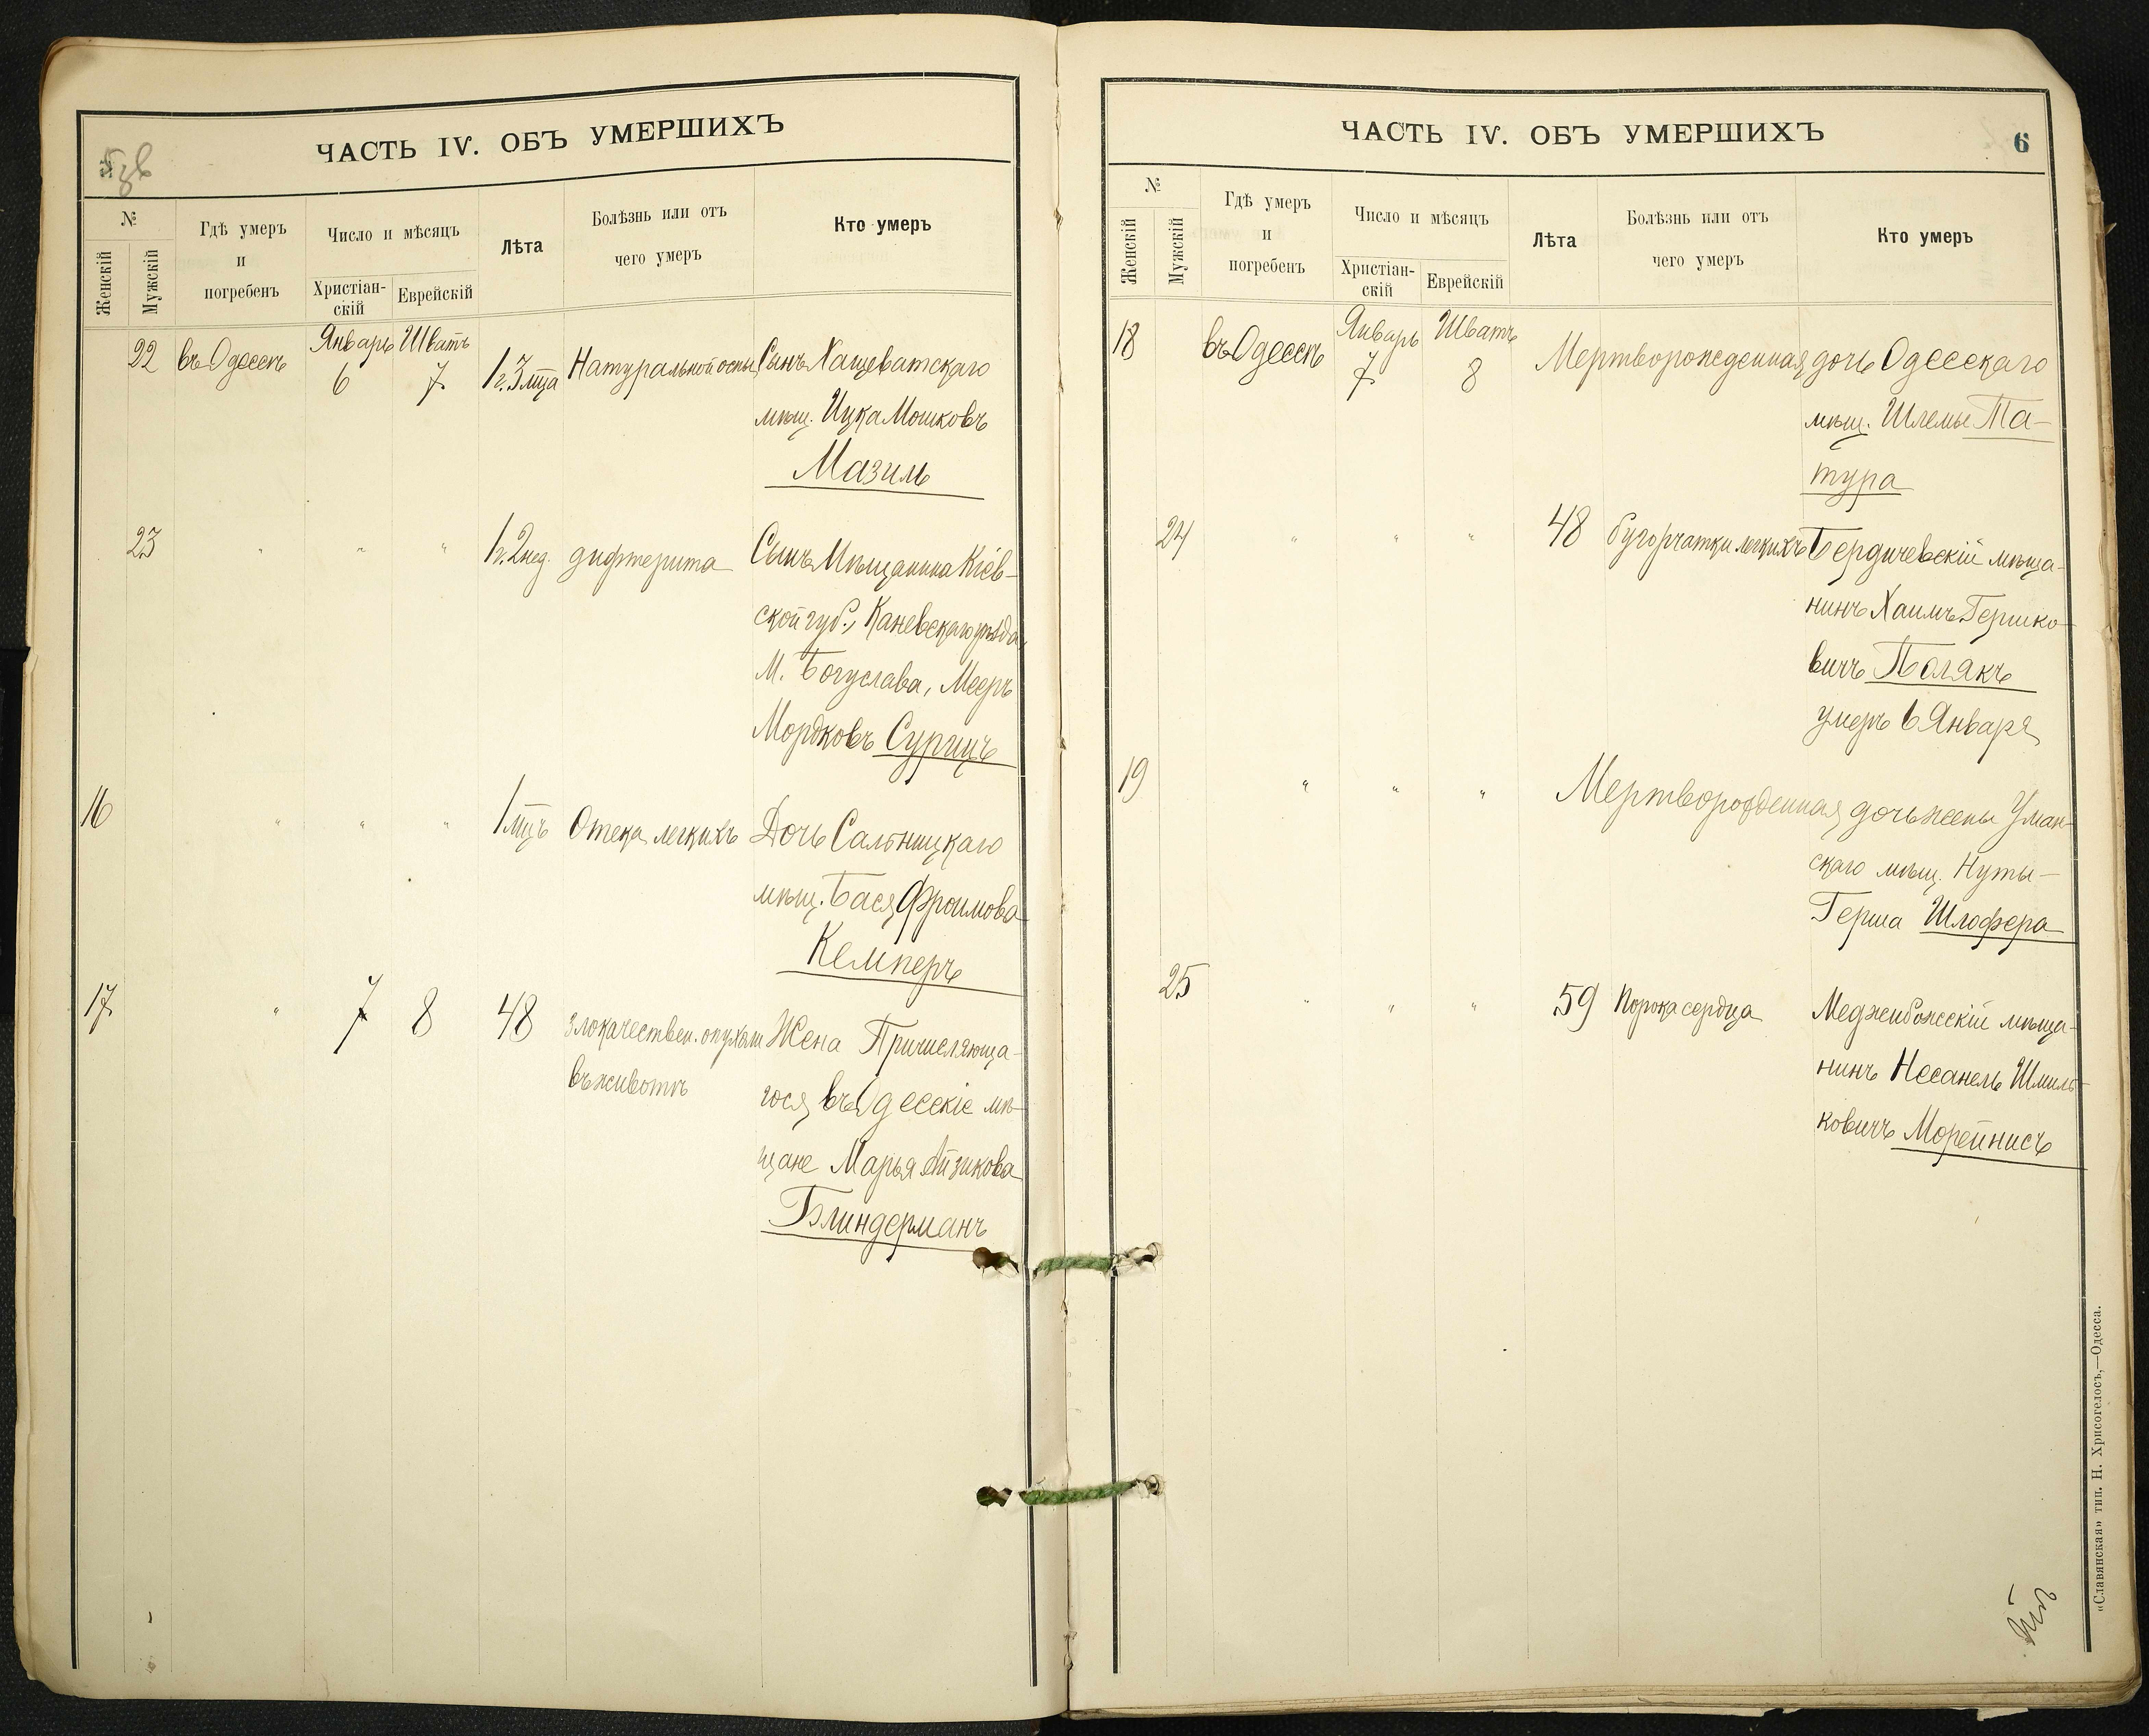 ЧАСТЬ IV. ОБЪ УМЕРШИХЪ
№
Женскій
Мужскій
Гдѣ умеръ
и
погребенъ
Число и мѣсяцъ
Христіан-
скій
Еврейскій
Лѣта
Болѣзнь или отъ
чего умеръ
Кто умеръ
22 въ Одессѣ Январь 6 Шватъ 7 1 г. 3 мѣца Натуральной оспы Сынъ Хащеватскаго
мѣщ. Ицка Мошковъ
Мазиль
23 " " " 1 г. 2 нед. дифтерита Сынъ Мѣщанина Кіев-
ской губ., Каневскаго уѣзда,
М. Богуслава, Мееръ
Мордковъ Сурицъ
16 " " " 1 мѣцъ Отека легкихъ Дочь Сальницкаго
мѣщ. Бася Фроимова
Кемперъ
17 " 7 8 48 злокачествен. опухоли Жена Причисляюща-
въ животѣ гося въ Одесскіе мѣ-
щане Марья Айзикова
Блиндерманъ
ЧАСТЬ IV. ОБЪ УМЕРШИХЪ
6
№
Женскій
Мужскій
Гдѣ умеръ
и
погребенъ
Число и мѣсяцъ
Христіан-
скій
Еврейскій
Лѣта
Болѣзнь или отъ
чего умеръ
Кто умеръ
18 въ Одессѣ Январь 7 Шватъ 8 Мертворожденная дочь Одесскаго
мѣщ. Шлемы Та-
тура
24 " " " 48 бугорчатки легкихъ Бердичевскій мѣща-
нинъ Хаимъ Гершко-
вичъ Полякъ
умеръ 6 Января
19 " " " Мертворожденная дочь жены Уман-
скаго мѣщ. Нуты-
Герша Шлофера
25 " " " 59 Порока сердца Меджибожскій мѣща-
нинъ Несанель Шмиль-
ковичъ Морейнисъ
«Славянская» тип. Н. Хрисогелосъ,—Одесса.